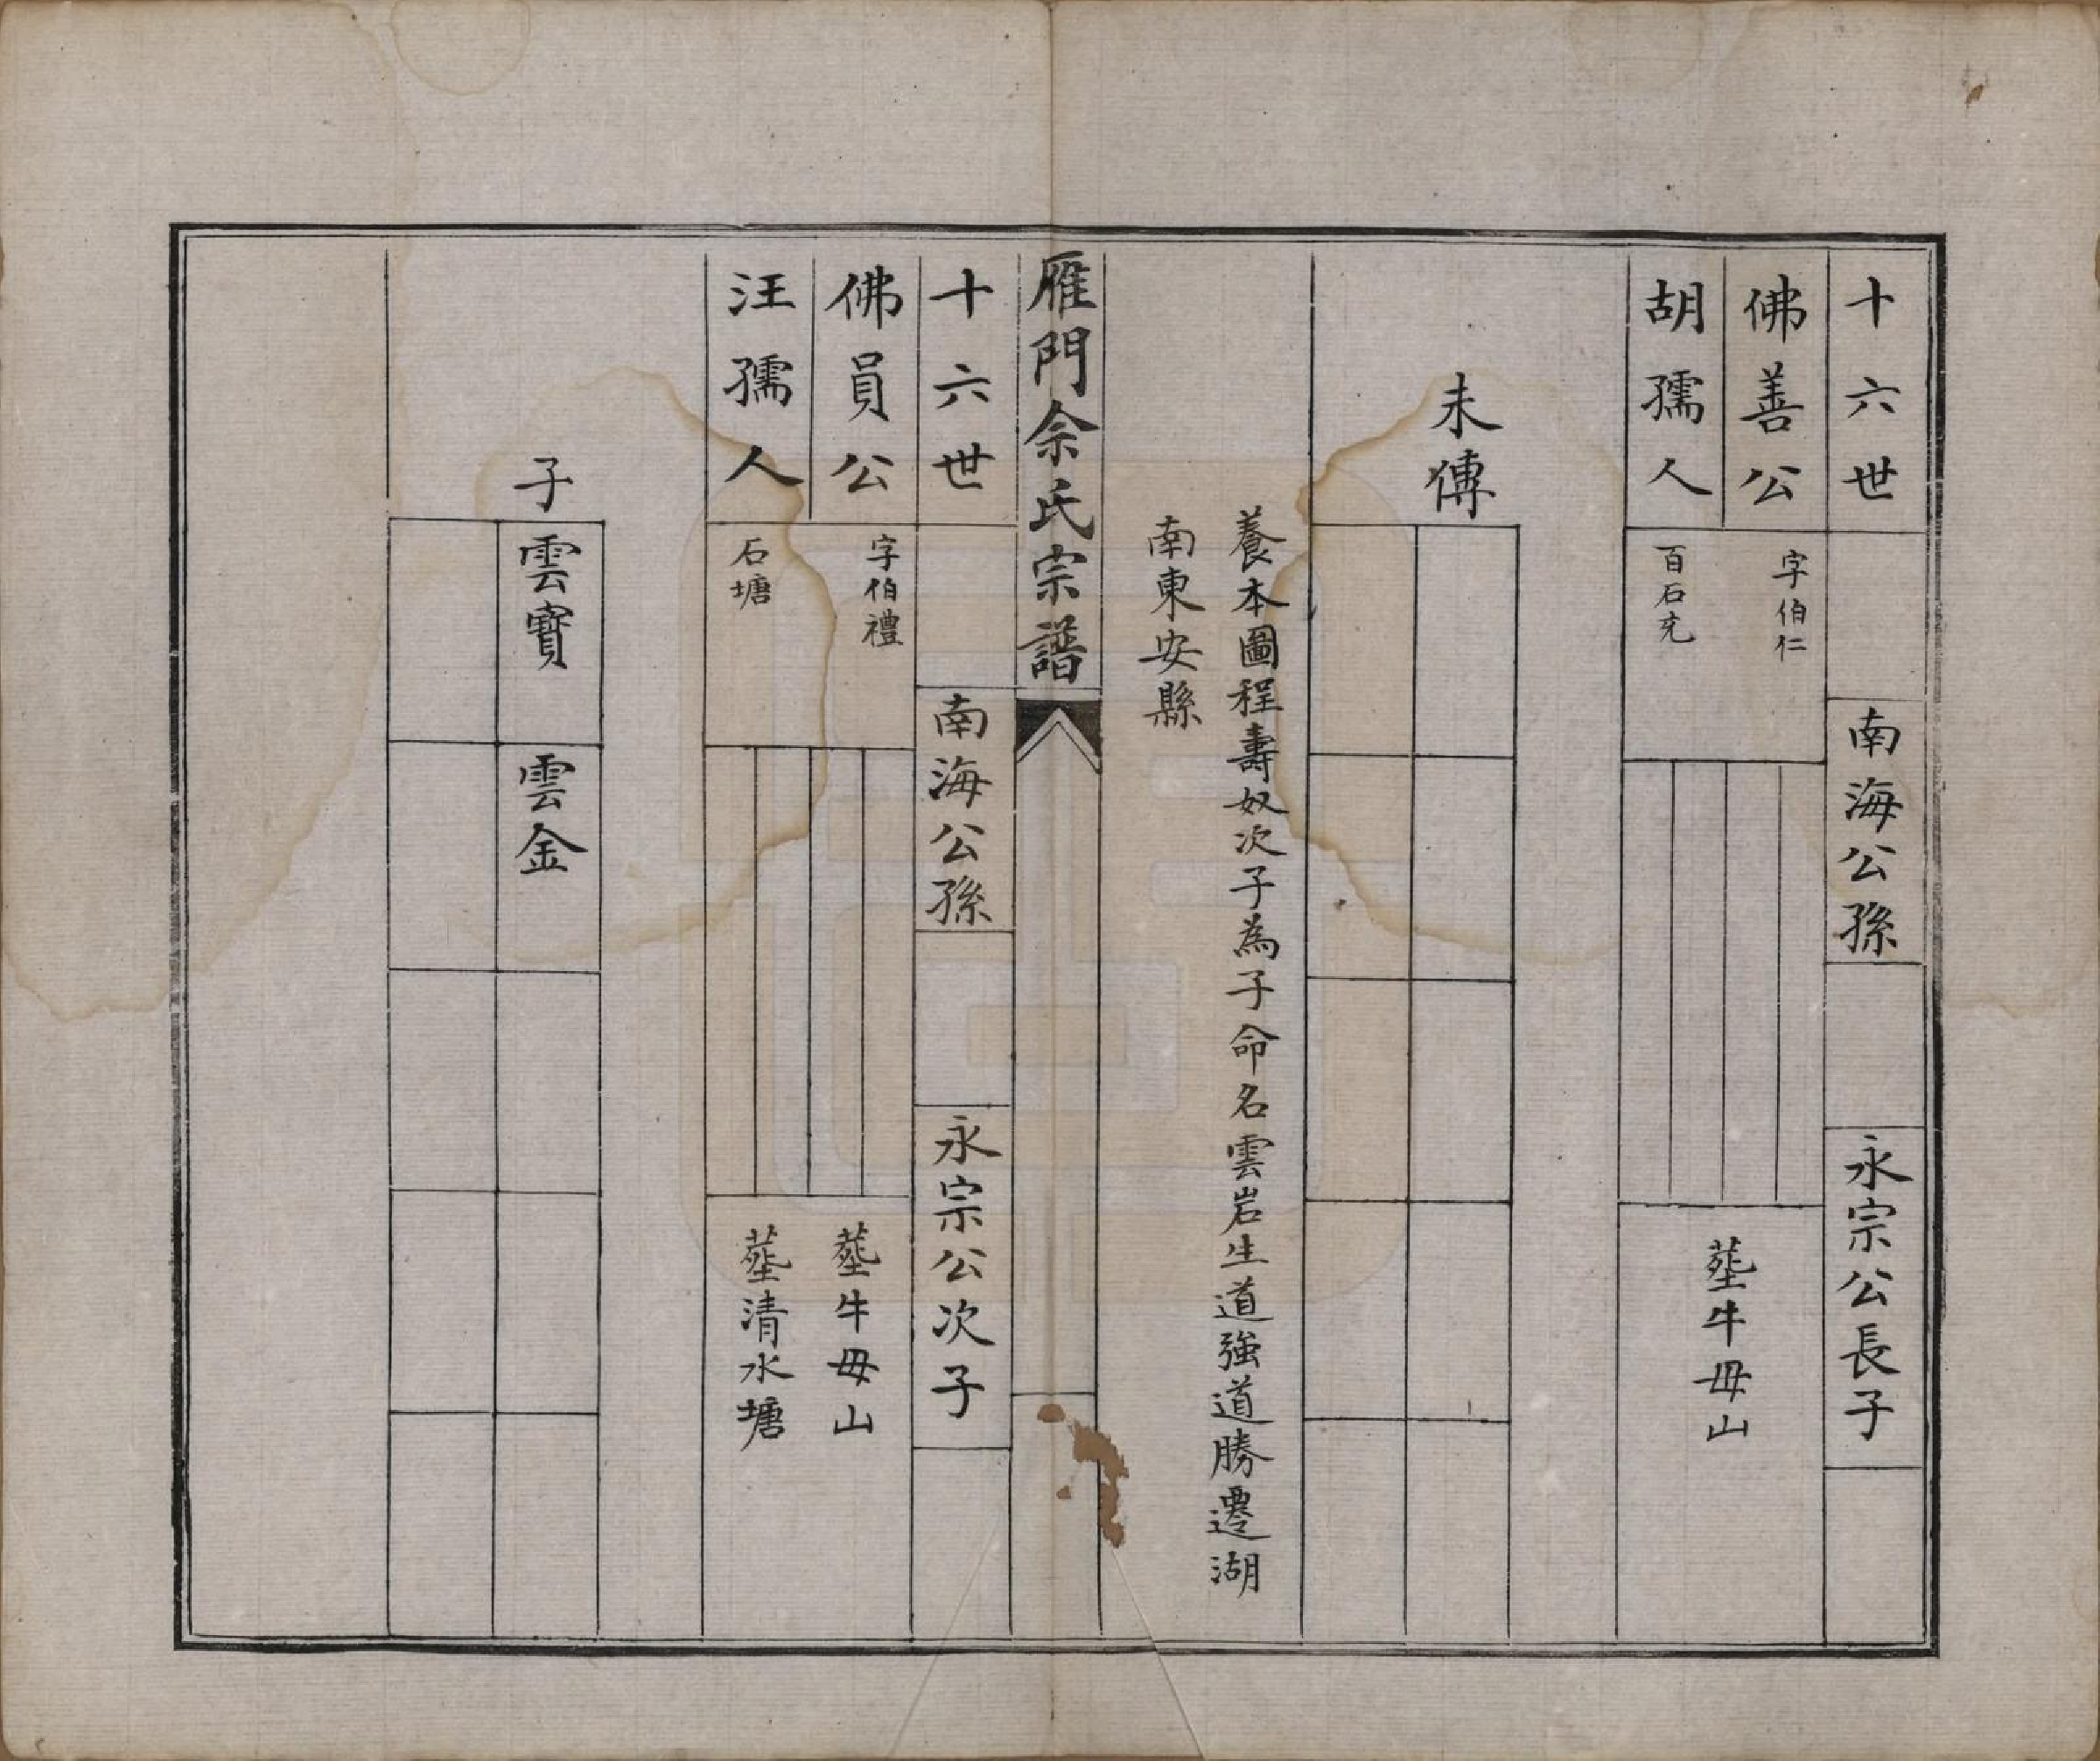 十六世
南海公孫
永宗公長子
佛善公
字伯仁
胡孺人
百石充
塟牛毋山
未傳
養本圖程壽奴次子為子命名雲岩生道強道勝遷湖
南東安縣
雁門佘氏宗譜
十六世
南海公孫
永宗公次子
佛員公
字伯禮
塟牛毋山
汪孺人
石塘
塟清水塘
子
雲寳
雲金